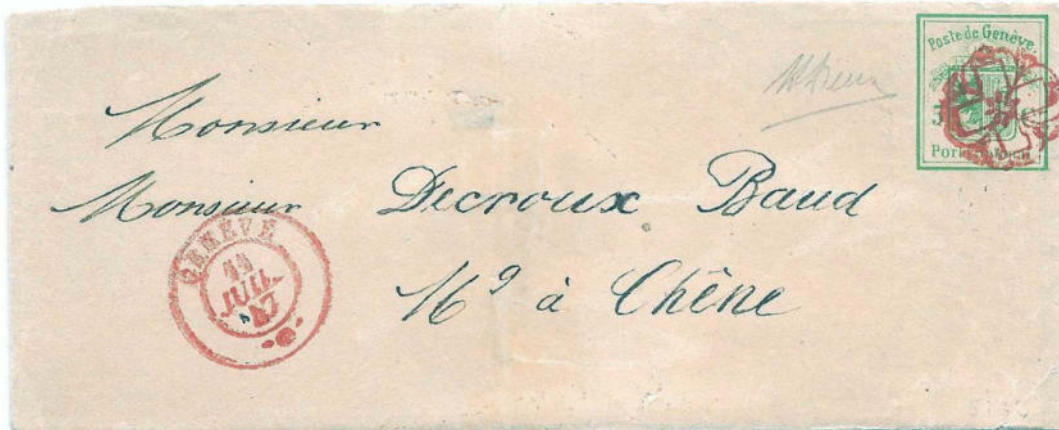 Poste de Genève
Port
Monsieur
Monsieur Decroux Baud
Md à Chêne
GENÈVE
JUIL
47